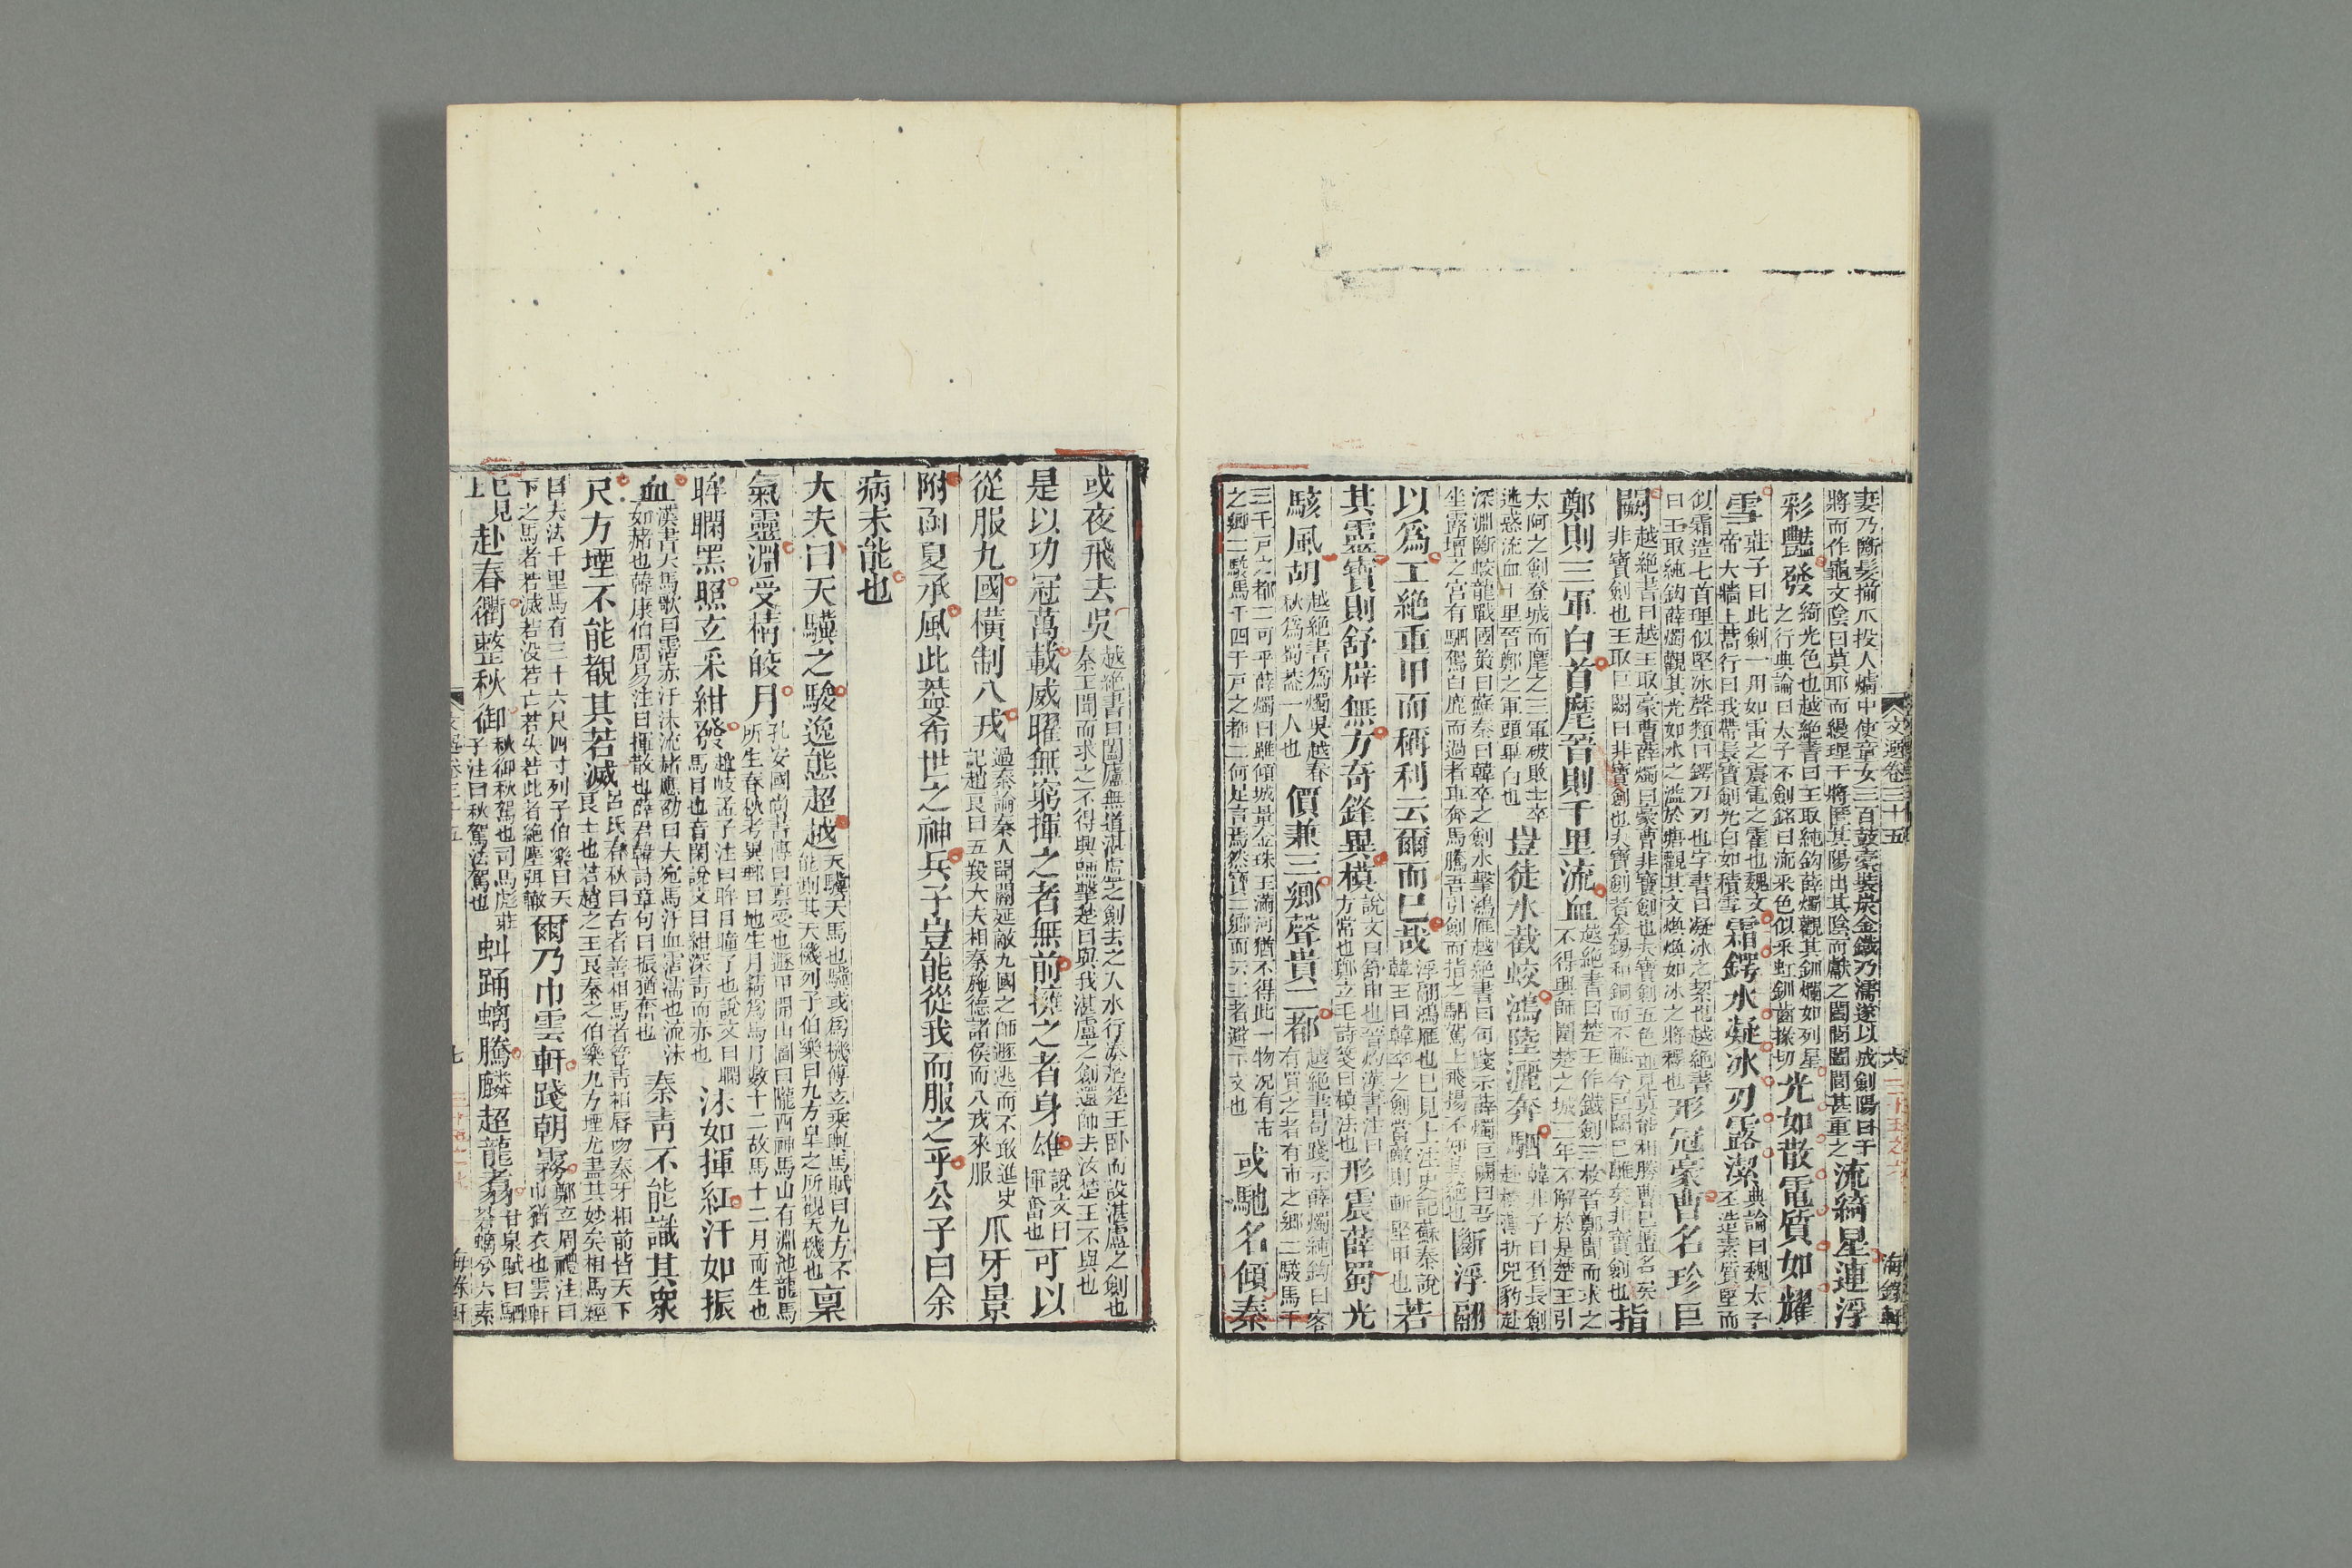 妻乃斷髮揃爪投入爐中使童女三百鼓橐裝炭金鐵乃濡遂以成劍陽曰干
將而作龜文陰曰莫耶而縵理干將匿其陽出其陰而獻之闔閭闔閭甚重之
流綺星連浮
彩豔發
綺光色也越絕書曰王取純鈞薛燭觀其釽爛如列星
之行典論曰太子丕劍銘曰流采色似采虹釽齒㨞切
光如散電質如耀
雪
莊子曰此劍一用如雷之震電之霍也魏文
帝大牆上蒿行曰我帶長寶劍光白如積雪
霜鍔水凝冰刃露潔
典論曰魏太子
丕造素質堅而
似霜造七首理似堅冰聲類曰鍔刀刃也字書曰凝冰之絜也越絕書
曰王取純鈞薛燭觀其光如水之溢於塘觀其文煥煥如冰之將釋也
形冠豪曹名珍巨
闕
越絕書曰越王取豪曹薛燭曰豪曹非寶劍也夫寶劍五色並見莫能相勝曹已擅名矣
非寶劍也王取巨闕曰非寶劍也夫寶劍者金錫和銅而不離今巨闕已離矣非寶劍也
指
鄭則三軍白首麾晉則千里流血
越絕書曰楚王作鐵劍三枚晉鄭聞而求之
不得興師圍楚之城三年不解於是楚王引
太阿之劍登城而麾之三軍破敗士卒
迷惑流血千里晉鄭之軍頭畢白也
豈徒水截蛟鴻陸灑奔駟
韓非子曰負長劍
赴榛薄折兕豹赴
深淵斷蛟龍戰國策曰蘇秦曰韓卒之劍水擊鴻雁越絕書曰句踐示薛燭巨闕曰吾
坐露壇之宮有駟駕白鹿而過者車奔馬騰吾引劍而指之駟駕上飛揚不知其絕也
斷浮翮
以爲工絕重甲而稱利云爾而已哉
浮翮鴻雁也已見上注史記蘇秦說
韓王曰韓卒之劍當敵則斬堅甲也
若
其靈寶則舒辟無方奇鋒異模
說文曰舒申也晉灼漢書注曰
方常也鄭立毛詩箋曰模法也
形震薛蜀光
駭風胡
越絕書爲燭吳越春
秋爲蜀蓋一人也
價兼三鄉聲貴二都
越絕書曰句踐示薛燭純鈞曰客
有買之者有市之鄉二駿馬千
三千戸之都二可乎薛燭曰雖傾城量金珠玉滿河猶不得此一物況有市
之鄉二駿馬千匹千戸之都二何足言焉然實二鄉而云三者避下文也
或馳名傾秦
文選卷三十五
六
海錄軒
或夜飛去吳
越絕書曰闔廬無道湛盧之劍去之入水行湊楚楚王臥而設湛盧之劍也
秦王聞而求之不得興師擊楚曰與我湛盧之劍還師去汝楚王不與也
是以功冠萬載威曜無窮揮之者無前擁之者身雄
說文曰
揮奮也
可以
從服九國橫制八戎
過秦論秦人開關延敵九國之師遯逃而不敢進史
記趙良曰五羖大夫相秦施德諸侯而八戎來服
爪牙景
附函夏承風此蓋希世之神兵子豈能從我而服之乎公子曰余
病未能也
大夫曰天驥之駿逸態超越
天驥天馬也驥或爲機傅玄乘輿馬賦曰九方不
能測其天機列子伯樂曰九方臯之所觀天機也
稟
氣靈淵受精皎月
孔安國尚書傳曰稟受也遯甲開山圖曰隴西神馬山有淵池龍馬
所生春秋考異郵曰地生月精爲馬月數十二故馬十二月而生也
眸䦨黑照玄采紺發
趙岐孟子注曰眸目瞳子也說文曰䦨
馬目也音閑說文曰紺深青而赤也
沫如揮紅汗如振
血
漢書天馬歌曰霑赤汗沫流赭應劭曰大宛馬汗血霑濡也流沫
如赭也韓康伯周易注曰揮散也薛君韓詩章句曰振猶奮也
秦靑不能識其衆
尺方堙不能覩其若滅
呂氏春秋曰古者善相馬者管靑相脣吻秦牙相前皆天下
良士也若趙之王良秦之伯樂九方堙尤盡其妙矣相馬經
曰夫法千里馬有三十六尺四寸列子伯樂曰天
下之馬者若滅若沒若亡若失若此者絕塵弭轍
爾乃巾雲軒踐朝霧
鄭立周禮注曰
巾猶衣也雲軒
已見
上
赴春衢整秋御
秋御秋駕也司馬彪莊
子注曰秋駕法駕也
虯踊螭騰麟超龍翥
甘泉賦曰駟
蒼螭兮六素
文選卷三十五
七
海錄軒